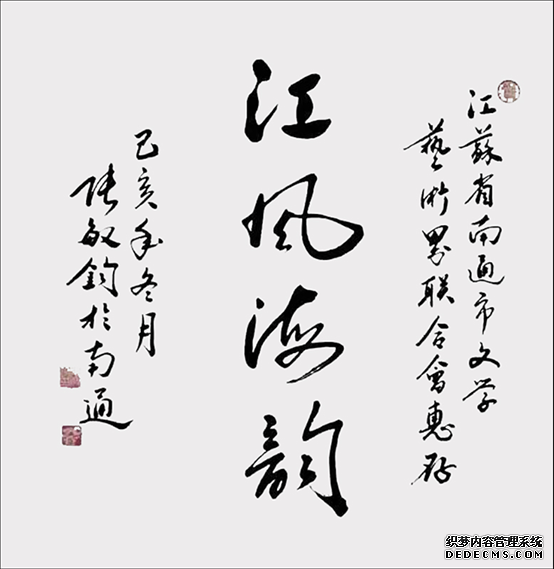 江蘇省南通市文学
藝術界联合會惠存
江风海韵
己亥年冬月
张敏鈞於南通
织梦内容管理系统
DEDECMS.COM